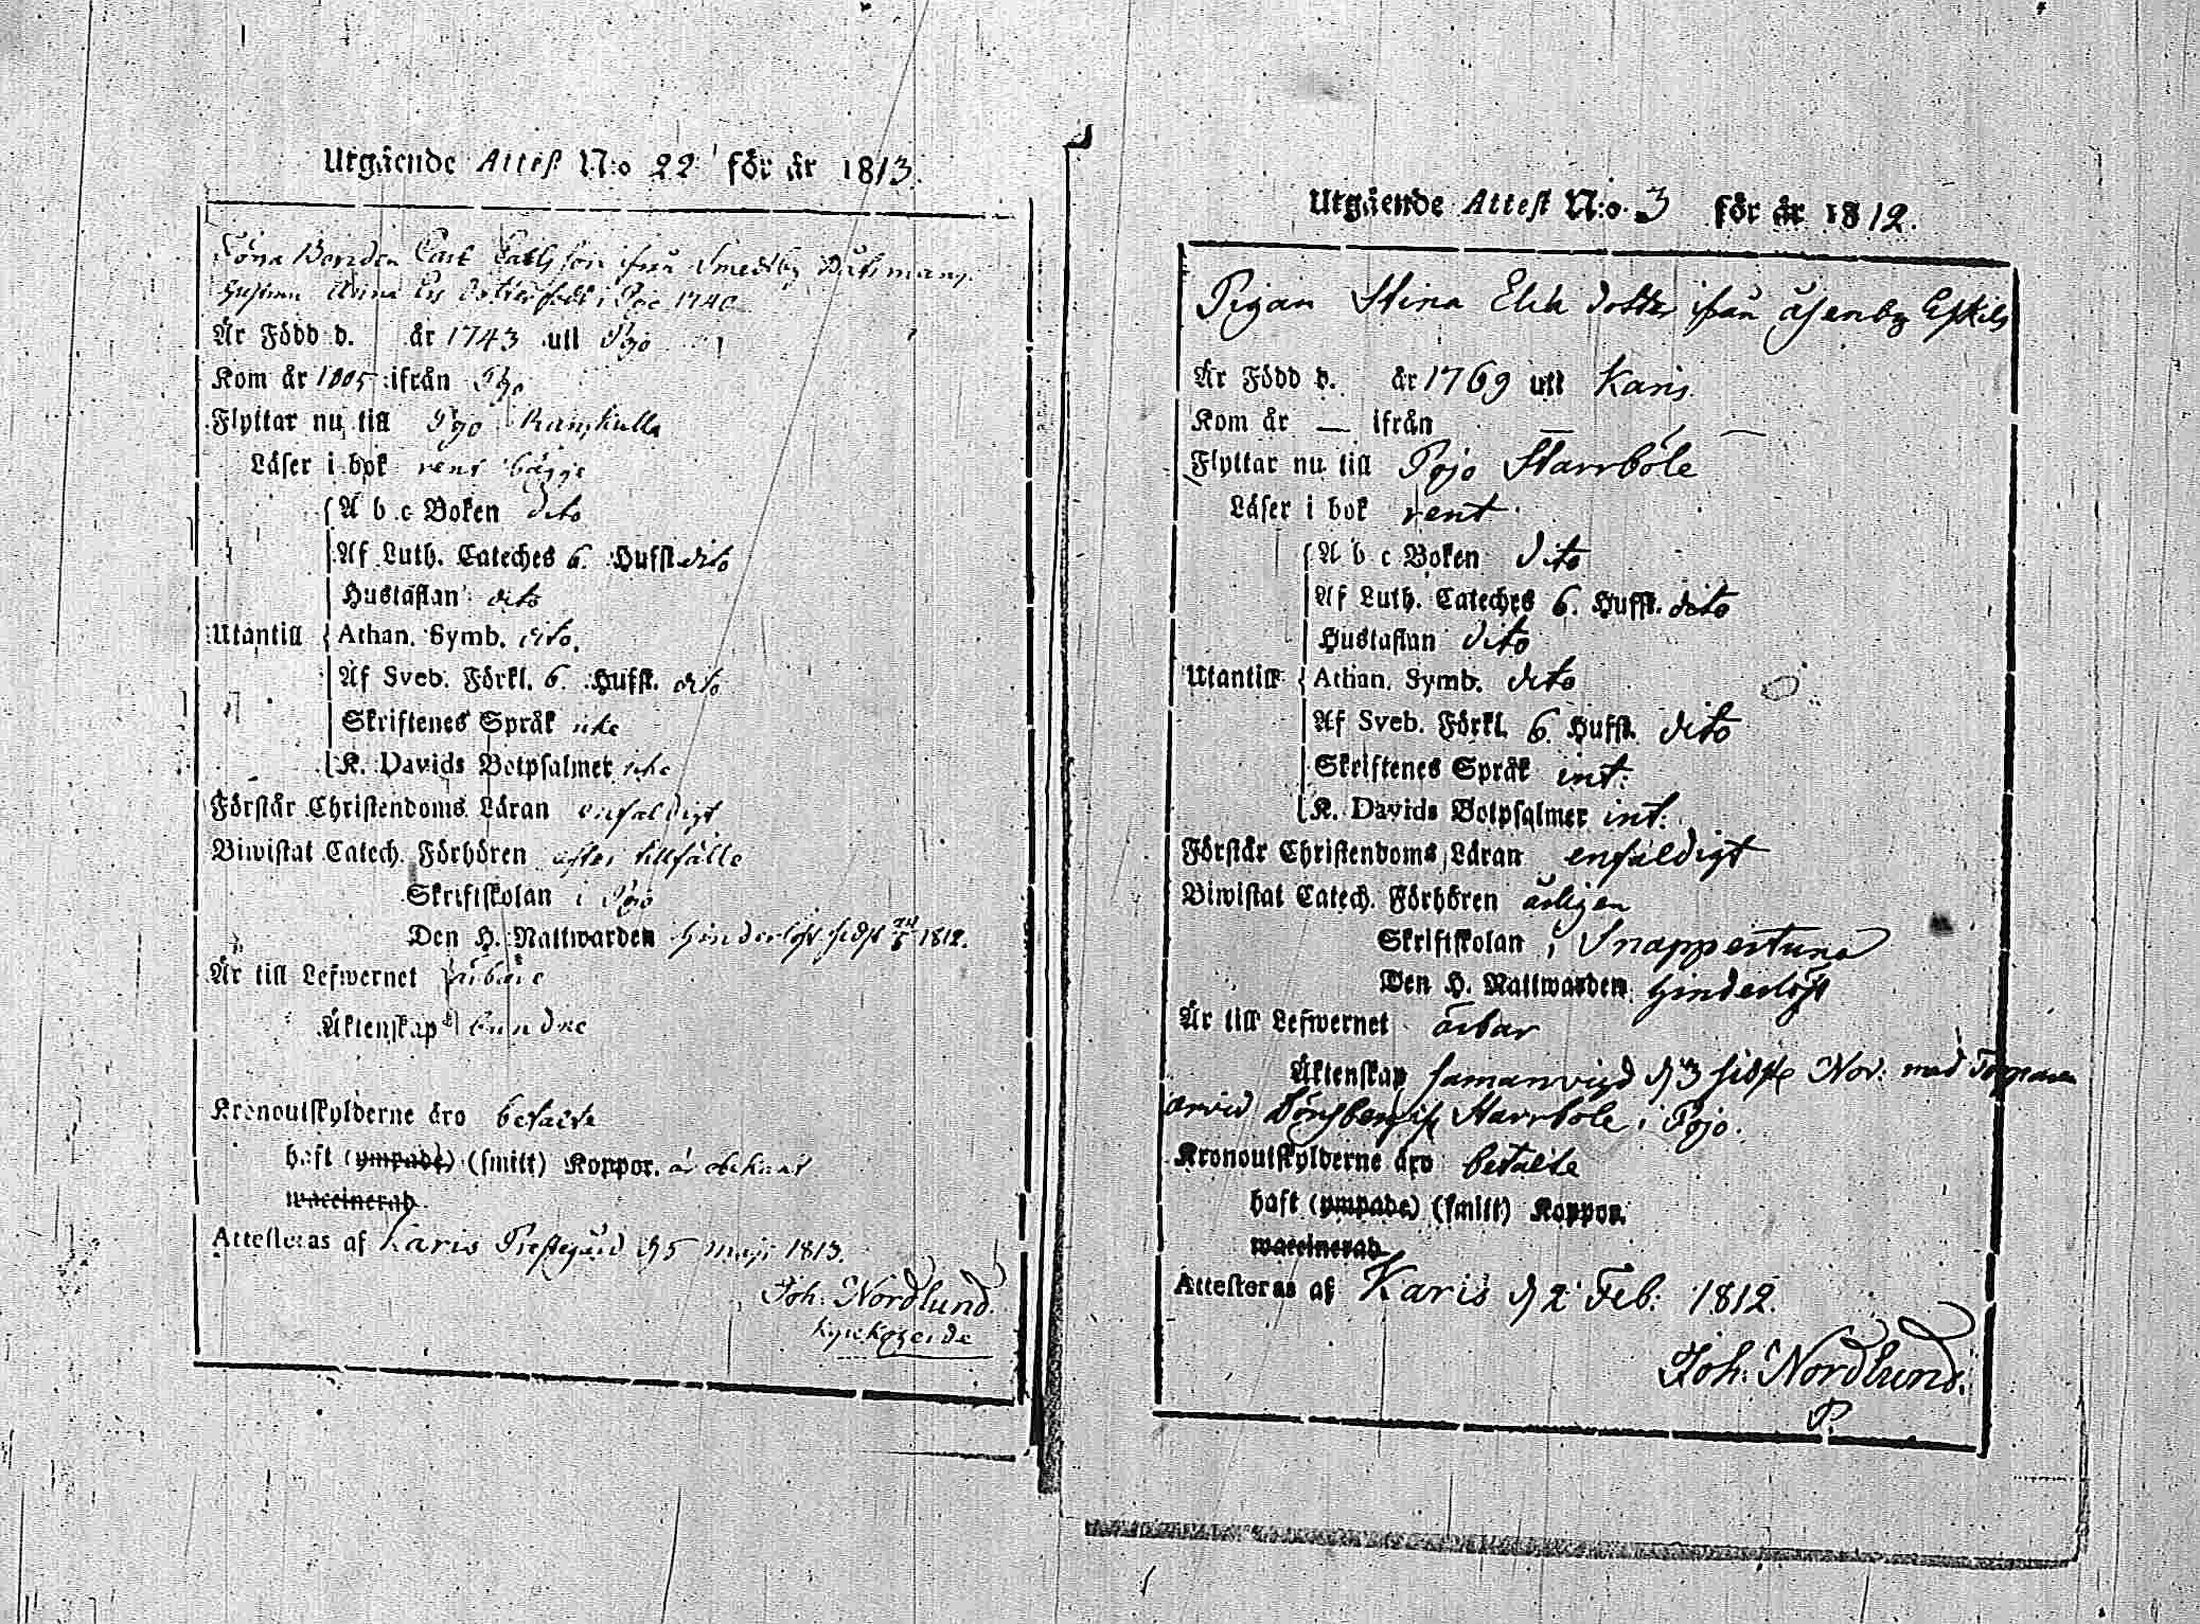 Utgående Attest N:o 22 för år 1813.
Förra Bonden Carl Carlsson ifrån Smedsby
hustrun Anna Ers dotter född i Pojo 1740
Är Född d. år 1743 uti Pojo
Kom år 1805 ifrån Pojo
Flyttar nu till Pojo Ramskulla
Läser i bok rent bägge
A b c Boken dito
Af Luth. Cateches 6. Hufst. dito
Hustaflan dito
Utantill Athan. Symb. dito.
Af Sveb. Förkl. 6. Hufst. dito
Skriftenes Språk icke
K. Davids Botpsalmer icke
Förstår Christendoms Läran enfaldigt
Biwistat Catech. Förhören efter tillfälle
Skriftskolan i Pojo
Den H. Nattwarden hinderlöst sidst 1812.
Är till Lefwernet ärbare
Äktenskap bundne
Kronoutskylderne äro betalte
haft (ympade) (smitt) Koppor. är obekant
waccinerad
Attesteras af Karis Prestegård d 5 Maji 1813.
Joh: Nordlund.
kyrkoherde
Utgående Attest N:o 3 för år 1812.
Pigan Stina Erik dotter ifrån Åsenby Eskils
Är Född d. år 1769 uti Karis.
Kom år — ifrån —
Flyttar nu till Pojo Starrböle
Läser i bok rent
A b c Boken dito
Af Luth. Cateches 6. Hufst. dito
Hustaflan dito
Utantill Athan. Symb. dito
Af Sveb. Förkl. 6. Hufst. dito
Skriftenes Språk int:
K. Davids Botpsalmer int:
Förstår Christendoms Läran enfaldigt
Biwistat Catech. Förhören årligen
Skriftskolan i Snappertuna
Den H. Nattwarden hinderlöst
Är till Lefwernet ärbar
Äktenskap samanvigd d 3 sidstl Nov: med Torparen
Arvid Lönsberg ifr Starrböle i Pojo.
Kronoutskylderne äro betalte
haft (ympade) (smitt) Koppor.
waccinerad
Attesteras af Karis d 2 Feb: 1812.
Joh: Nordlund.
P.